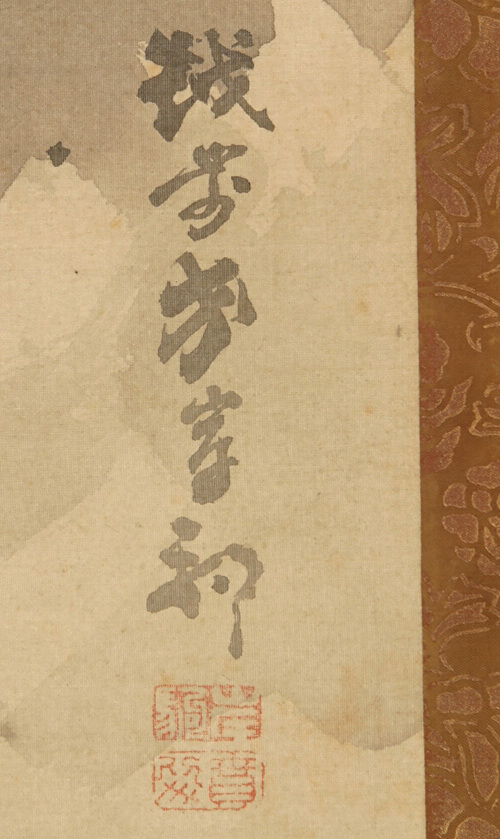 越前守岸駒
岸駒